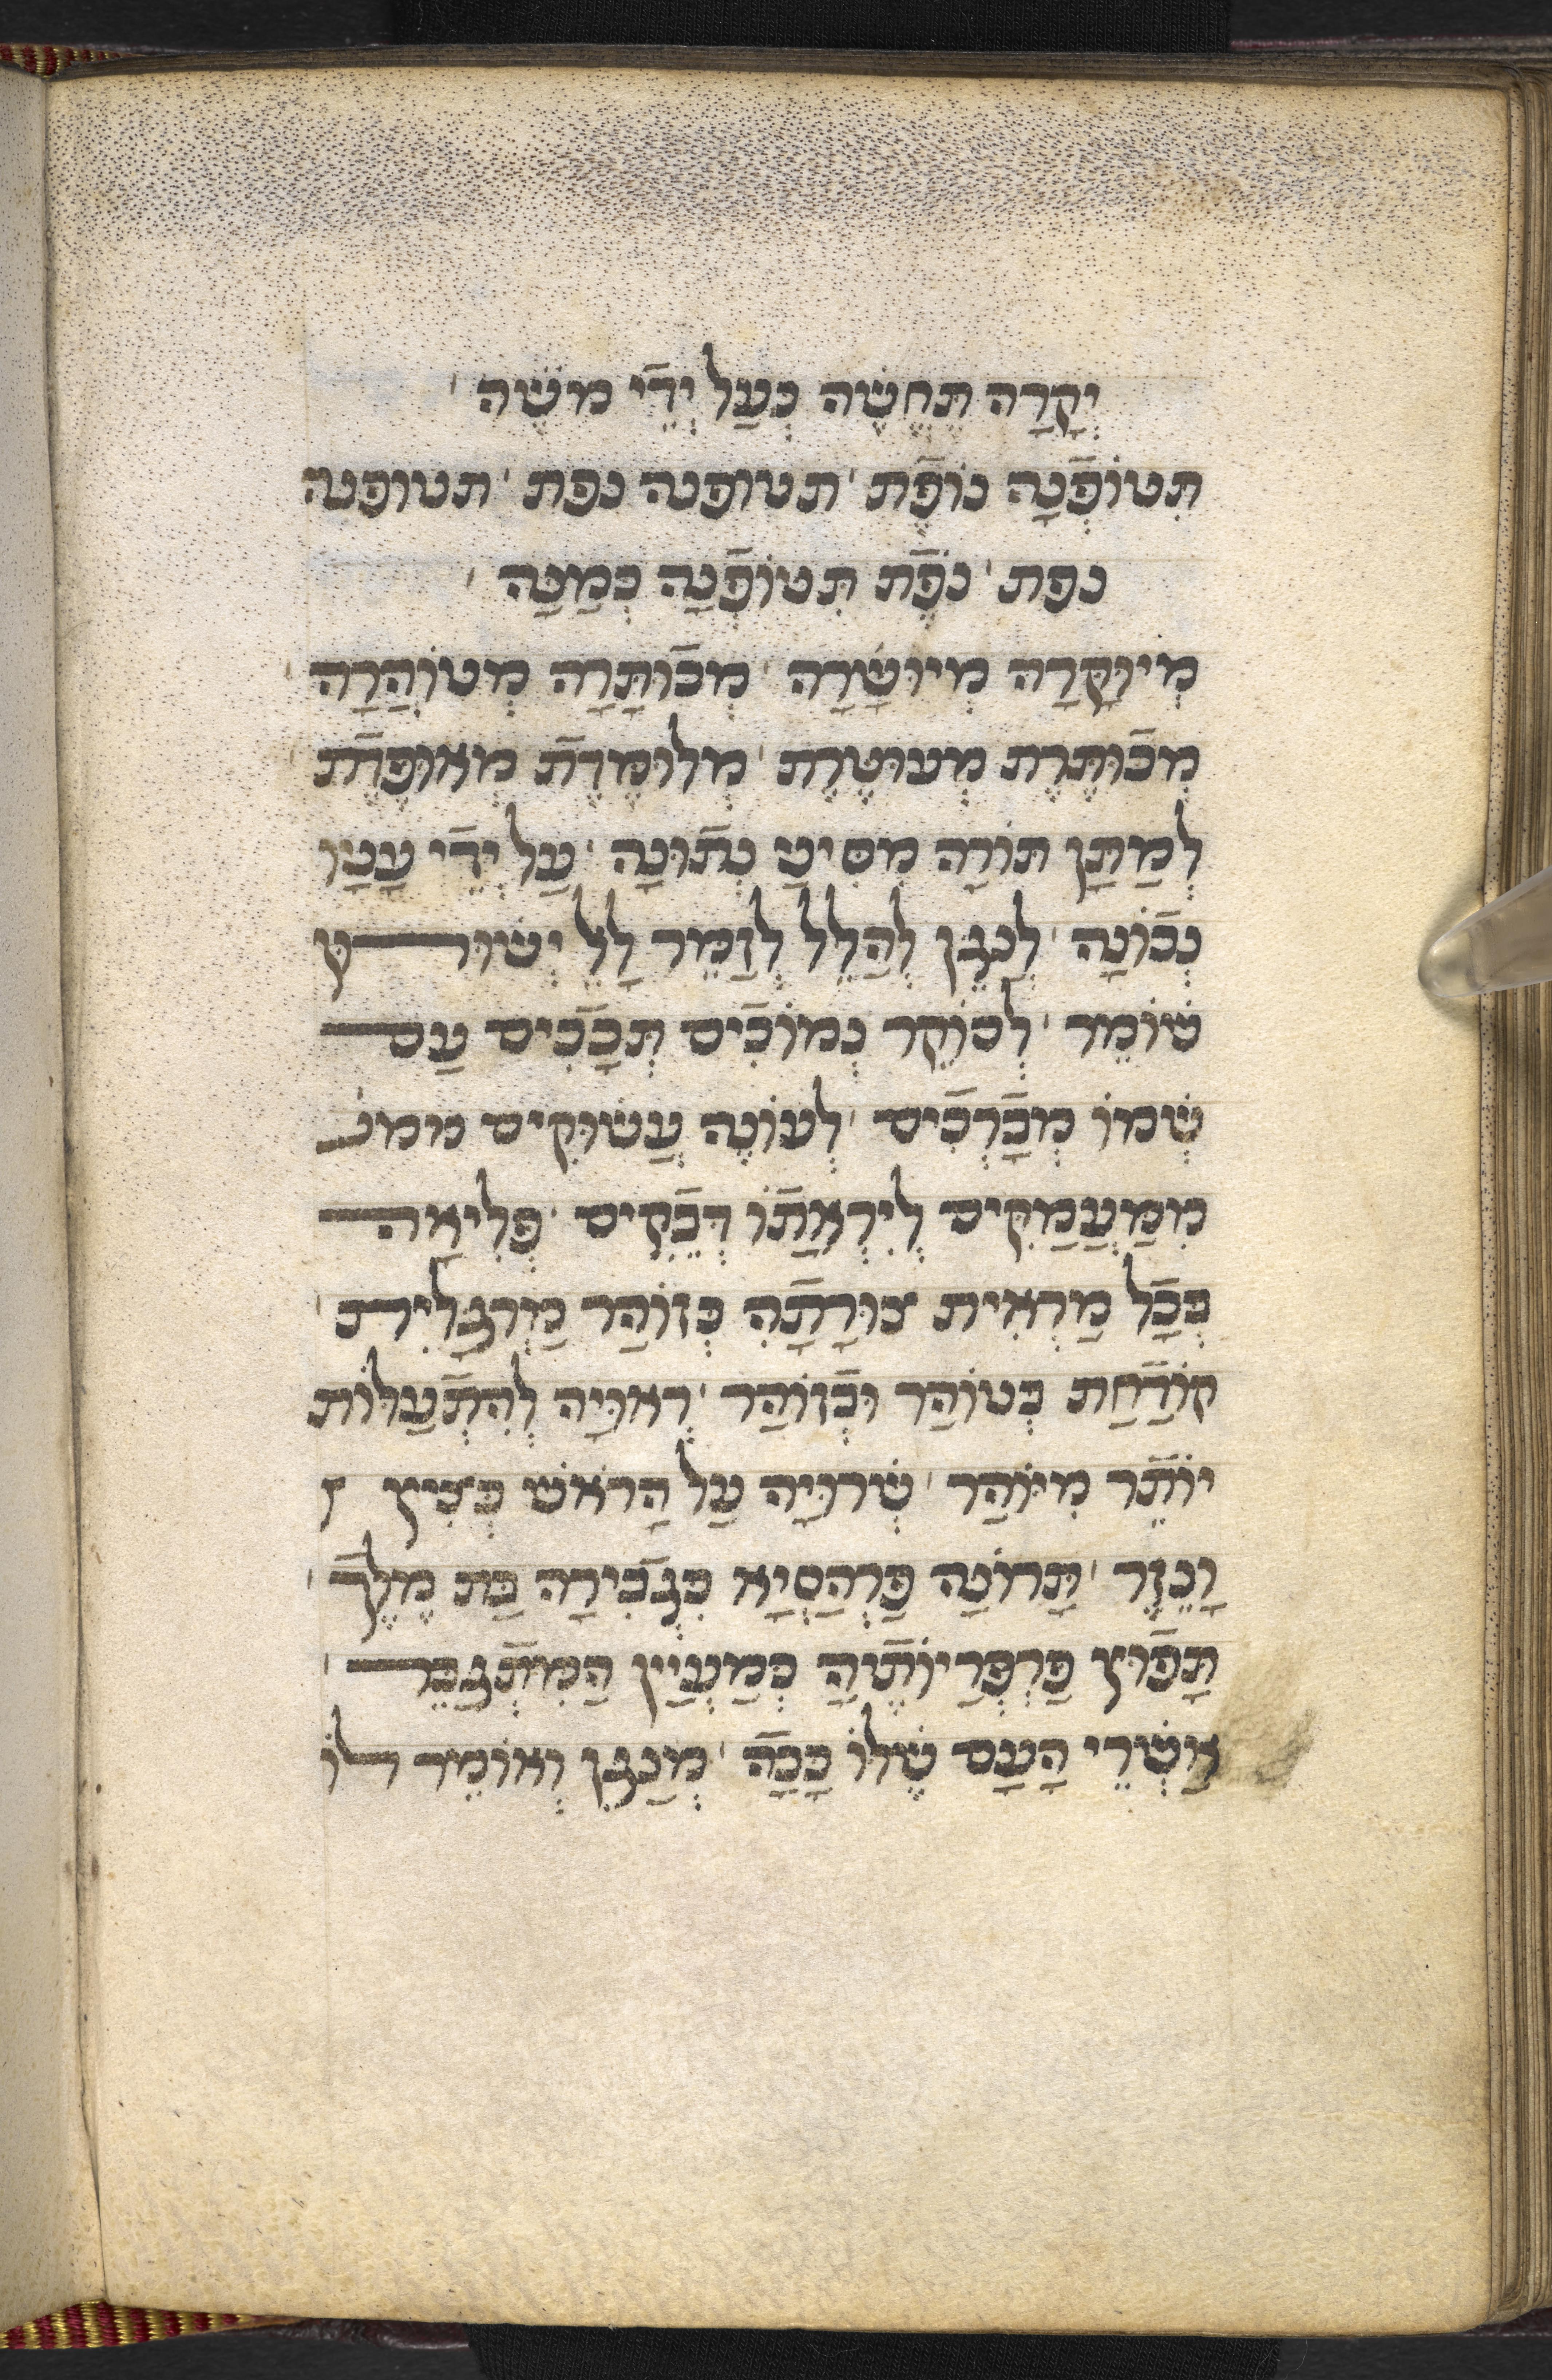 יְקָרָה תֶּחֱשֶׁה כְּעַל יְדֵי משֶׁה ׳
תִטוֹפְנָה נוֹפֶת ׳ תטופנה נפת ׳ תטופנה
נפת ׳ נֹפֶת תִּטוֹפְנָה כְּמַנָּה ׳
מְיוּקָרָה מְיוּשָׁרָה ׳ מְכוּתָּרָה מְטוֹהֲרָה ׳
מְכוּתֶּרֶת מְעוּטֶרֶת ׳ מְלוּמֶדֶת מְאוּפֶדֶת ׳
לְמַתַּן תּוֹרָה מִסִּינַי נְתוּנָה ׳ עַל יְדֵי עָנָיו
נְכוֹנָה ׳ לְנַגֵּן לְהַלֵּל לְזַמֵּר לָלֵל יְשׁוּר
שׁוֹמֵר ׳ לְבוֹקֶר נְמוֹכִים תְּכָכִים עַם
שְׁמוֹ מְבָרְכִים ׳ לְעוֹנֶה עֲשׁוּקִים ממע
מִמַּעֲמַקִים לְיִרְאָתוֹ דְבֵקִים ׳ פְּלִיאָה
בְּכָל מַרְאִית צוּרָתָהּ כְּזוֹהַר מַרְגָּלִית ׳
קוֹדַחַת בְּטוֹהַר וּבְזוֹהַר ׳ רְאוּיָה לְהִתְעַלּוֹת
יוֹתֵר מִיּוֹהַר ׳ שְׁרוּיָה עַל הָרֹאשׁ כְּצִיץ
וָנֵזֶר ׳ תָּרוֹנָה פַּרְהַסְיָא כִּגְבִירָה בַּת מֶלֶךְ ׳
תָּפוּץ פַּרְפְּרַיוֹתֶיהָ כְּמַעְיַין הַמִּתְגַּבֵּר ׳
אַשְׁרֵי הָעָם שֶׁלּוֹ כָּכָה ׳ מְנַגֵּן וְאוֹמֵר לוֹ